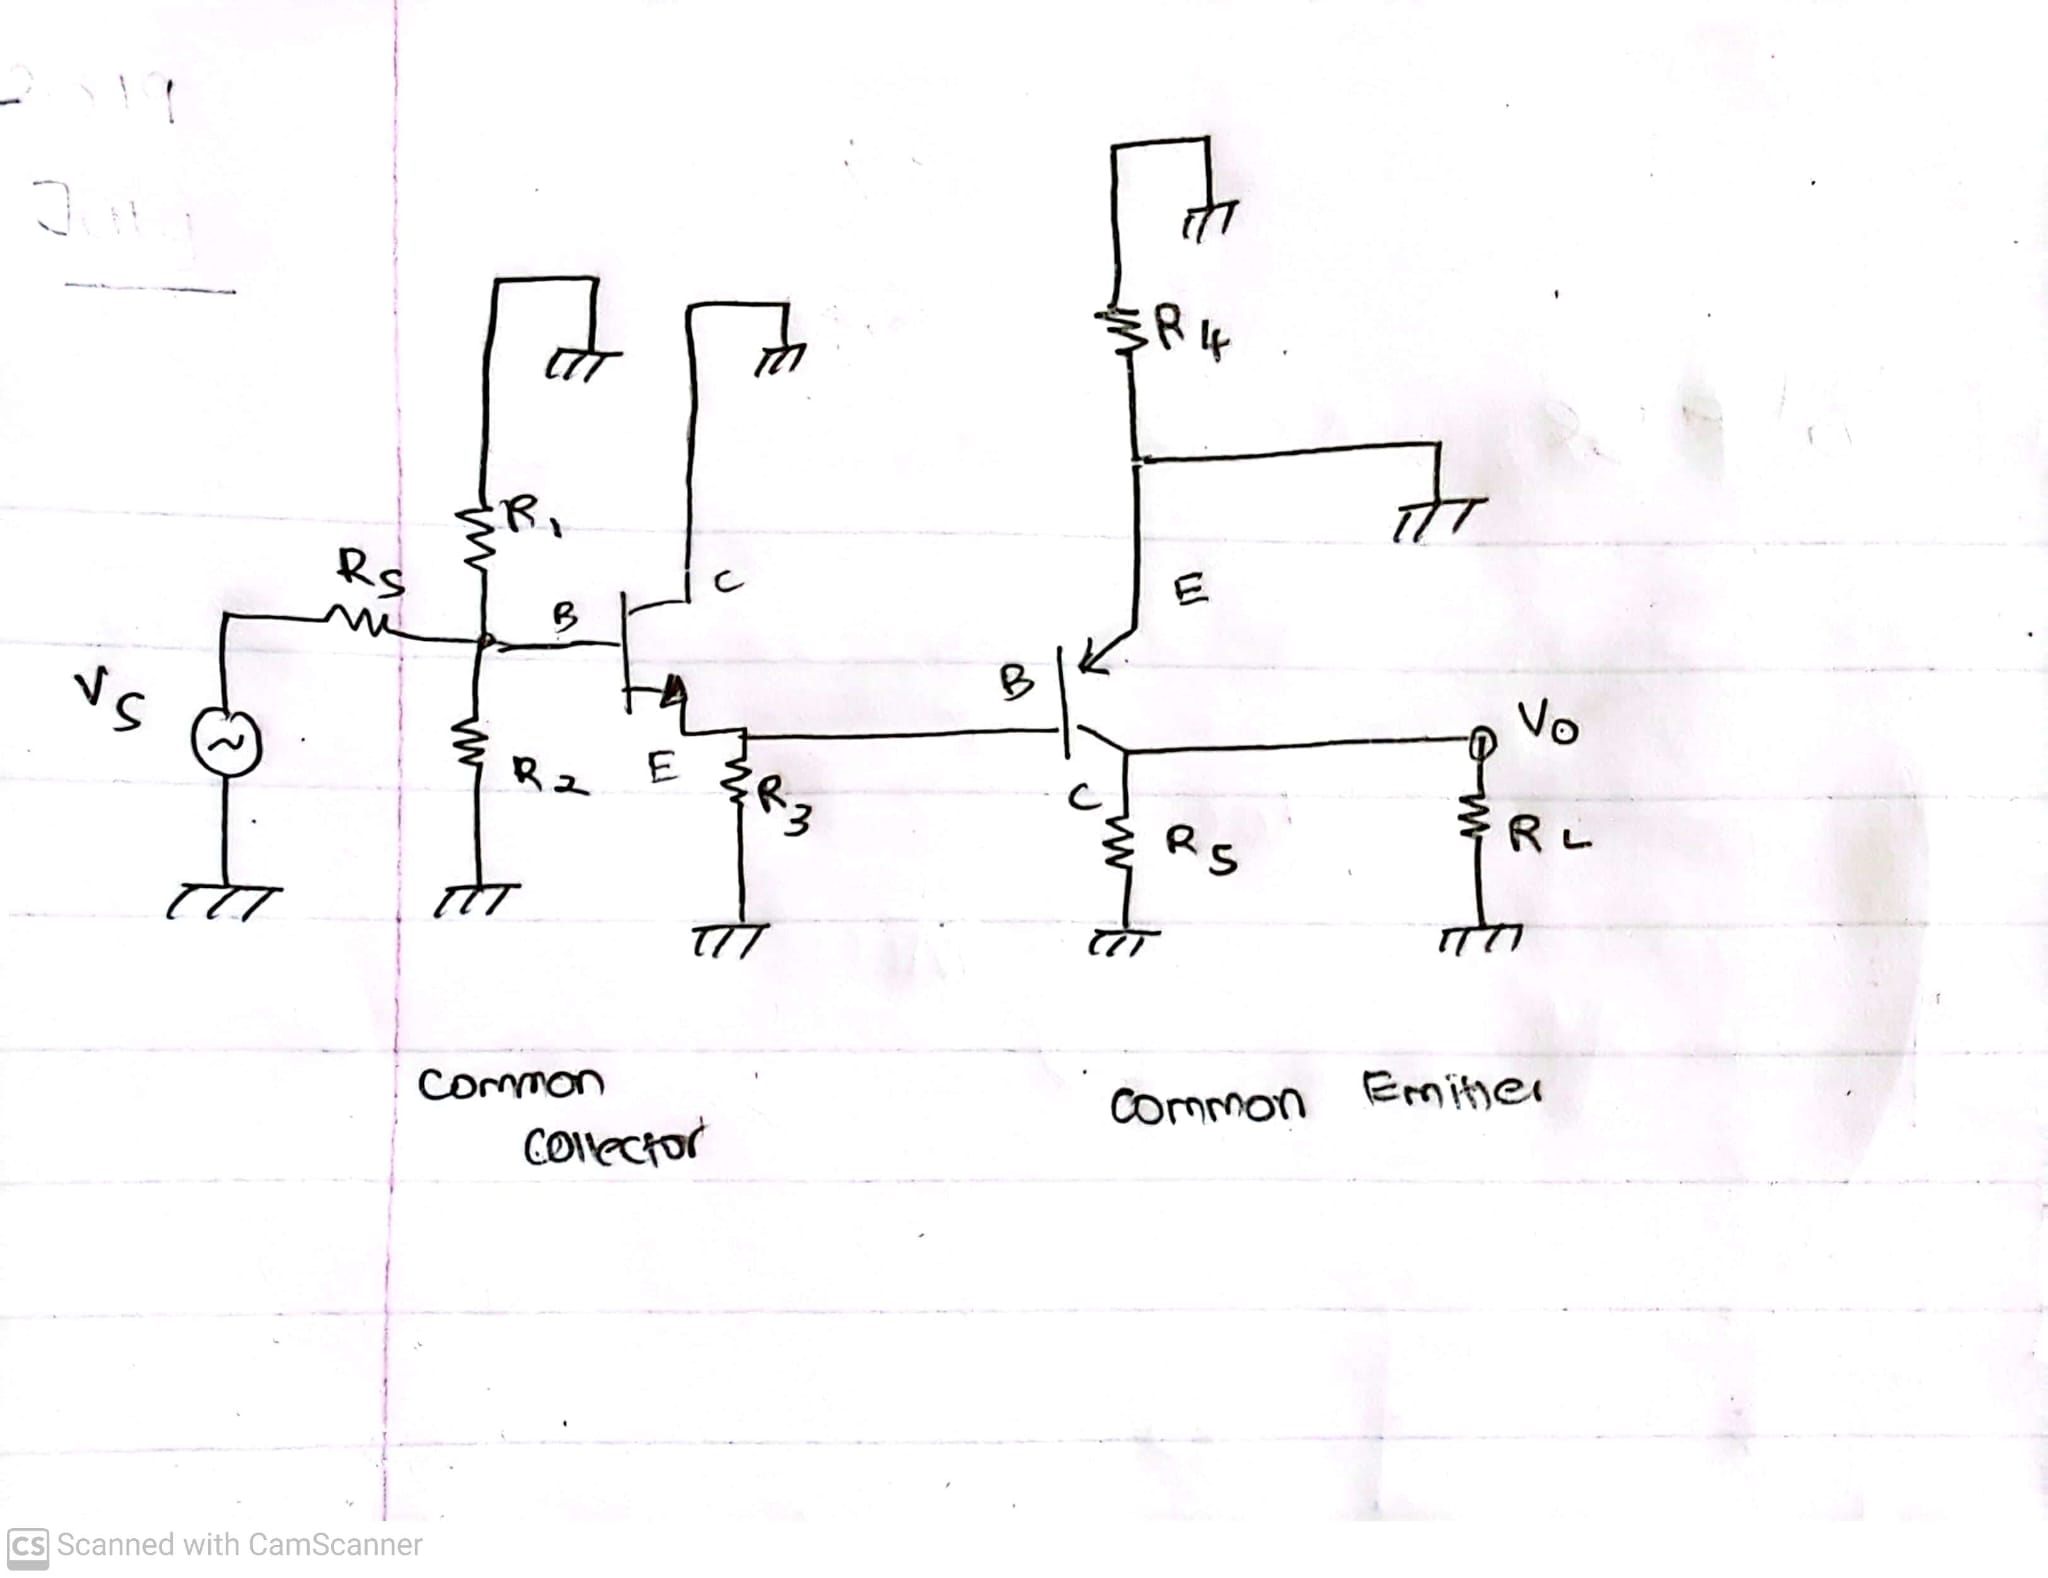 R4
R1
Rs
C
B
E
B
Vs
Vo
R2
E
R3
C
R5
RL
common
collector
common Emitter
CS Scanned with CamScanner